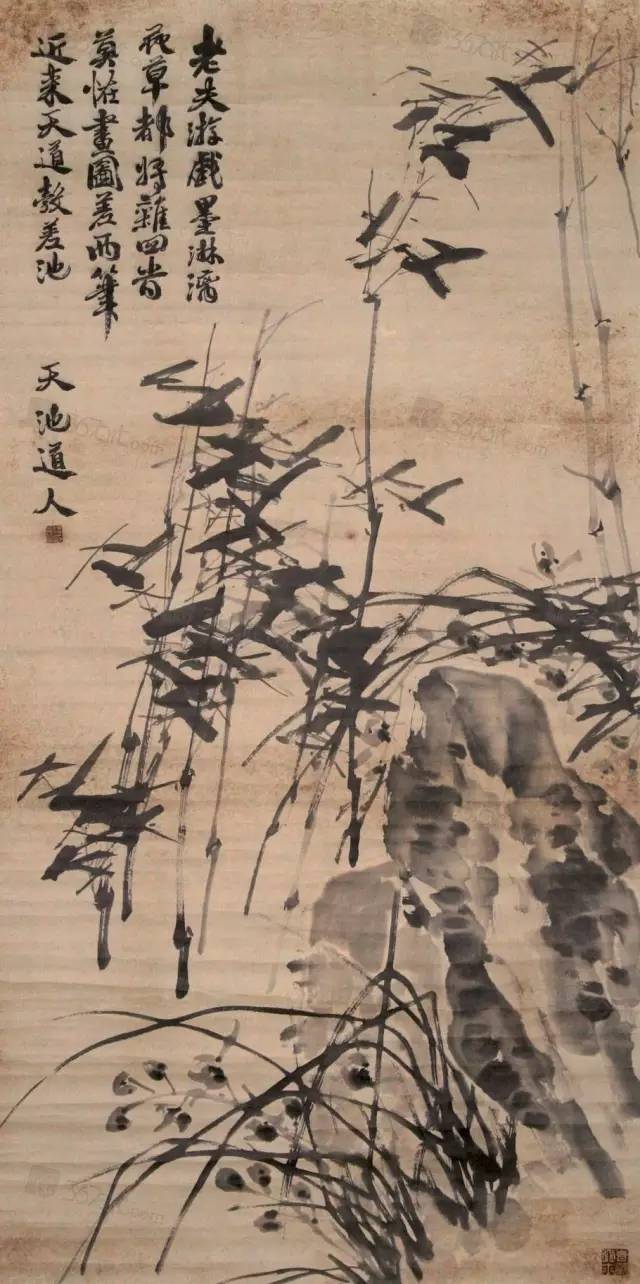 老夫游戲墨淋漓
花草都將雜四旹
莫怪畫圖差兩筆
近来天道彀差池
天池道人